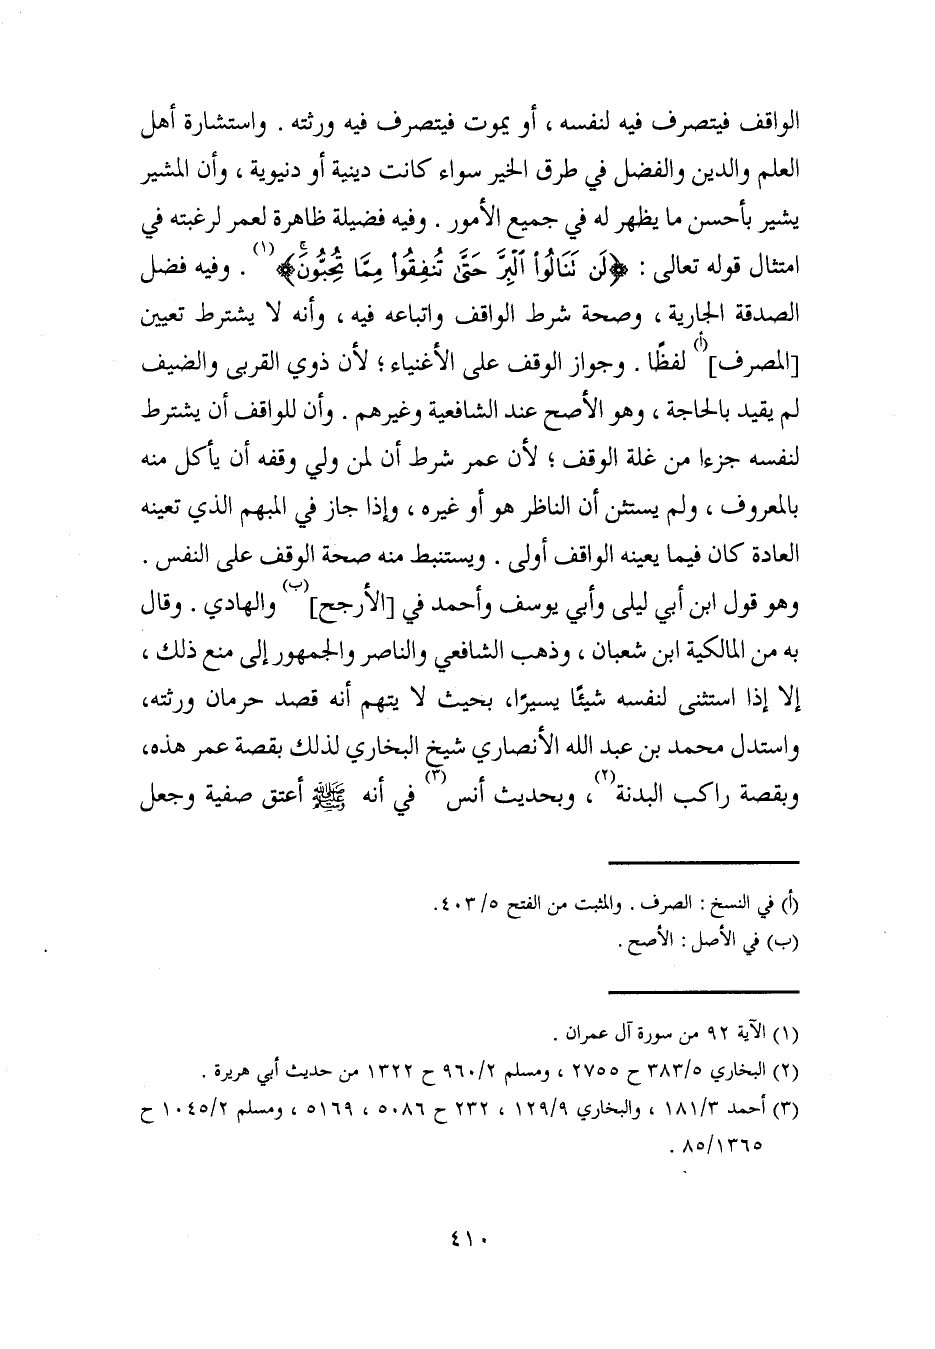 الواقف فيتصرف فيه لنفسه ، أو يموت فيتصرف فيه ورثته . واستشارة أهل
العلم والدين والفضل في طرق الخير سواء كانت دينية أو دنيوية ، وأن المشير
يشير بأحسن ما يظهر له في جميع الأمور . وفيه فضيلة ظاهرة لعمر لرغبته في
امتثال قوله تعالى : ﴿لَن تَنَالُوا۟ ٱلْبِرَّ حَتَّىٰ تُنفِقُوا۟ مِمَّا تُحِبُّونَۚ﴾(١) . وفيه فضل
الصدقة الجارية ، وصحة شرط الواقف واتباعه فيه ، وأنه لا يشترط تعيين
[المصرف](أ) لفظًا . وجواز الوقف على الأغنياء ؛ لأن ذوي القربى والضيف
لم يقيد بالحاجة ، وهو الأصح عند الشافعية وغيرهم . وأن للواقف أن يشترط
لنفسه جزءا من غلة الوقف ؛ لأن عمر شرط أن لمن ولي وقفه أن يأكل منه
بالمعروف ، ولم يستثن أن الناظر هو أو غيره ، وإذا جاز في المبهم الذي تعينه
العادة كان فيما يعينه الواقف أولى . ويستنبط منه صحة الوقف على النفس .
وهو قول ابن أبي ليلى وأبي يوسف وأحمد في [الأرجح](ب) والهادي . وقال
به من المالكية ابن شعبان ، وذهب الشافعي والناصر والجمهور إلى منع ذلك ،
إلا إذا استثنى لنفسه شيئًا يسيرًا، بحيث لا يتهم أنه قصد حرمان ورثته،
واستدل محمد بن عبد الله الأنصاري شيخ البخاري لذلك بقصة عمر هذه،
وبقصة راكب البدنة(٢)، وبحديث أنس(٣) في أنه ﷺ أعتق صفية وجعل
(أ) في النسخ : الصرف . والمثبت من الفتح ٤٠٣/٥.
(ب) في الأصل : الأصح .
(١) الآية ٩٢ من سورة آل عمران .
(٢) البخاري ٣٨٣/٥ ح ٢٧٥٥ ، ومسلم ٩٦٠/٢ ح ١٣٢٢ من حديث أبي هريرة .
(٣) أحمد ١٨١/٣ ، والبخاري ١٢٩/٩ ، ٢٣٢ ح ٥٠٨٦ ، ٥١٦٩ ، ومسلم ١٠٤٥/٢ ح
٨٥/١٣٦٥ .
٤١٠